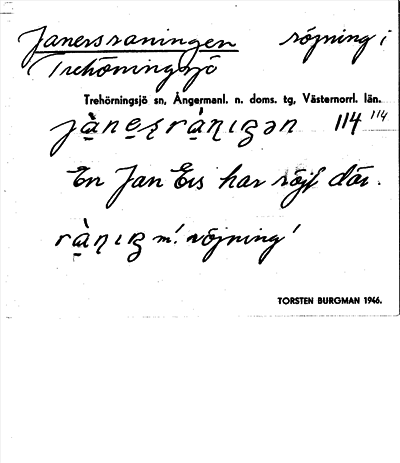 Janersraningen röjning i
Trehörningsjö
Trehörningsjö sn, Ångermanl. n. doms. tg, Västernorrl. län.
114 114
En Jan Ers har röjt där.
m. röjning
TORSTEN BURGMAN 1946.